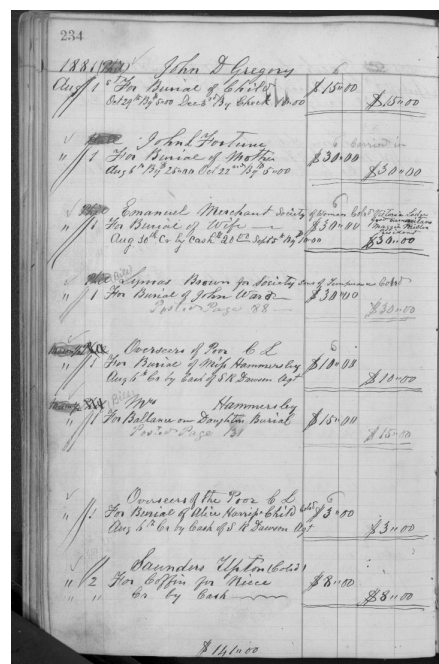 234
1881 John D Gregory
Aug 1 For Burial of Child $15"00
Oct 29th By $5"00 Dec 3d By Check 10"00 $15"00
John Fortune
" 1 For Burial of Mother $30"00
Aug 6th By 25"00 Oct 22nd By 5"00 $30"00
Emanuel Merchant Society of Women Cold
" 1 For Burial of Wife $30"00
Aug 30th Cr by Cash 20 Sept 5th By 10"00 $30"00
Brown for Society Sons of Temperance Cold
" 1 For Burial of John Ward $30"00
Posted Page 88 $30"00
Overseers of Poor C L
1 For Burial of Miss Hammersley $10"00
Aug 6th Cr by Cash of S K Dawson Agt $10"00
Mrs Hammersley
1 For Ballance on Daughter Burial $15"00
Posted Page 131 $15"00
Overseers of the Poor C L
" 1 For Burial of Alice Harris Child Cold $3"00
Aug 6th Cr by Cash of S K Dawson Agt $3"00
Saunders Tipton (Cold)
" 2 For Coffin for Niece $8"00
" " Cr by Cash $8"00
$141"00